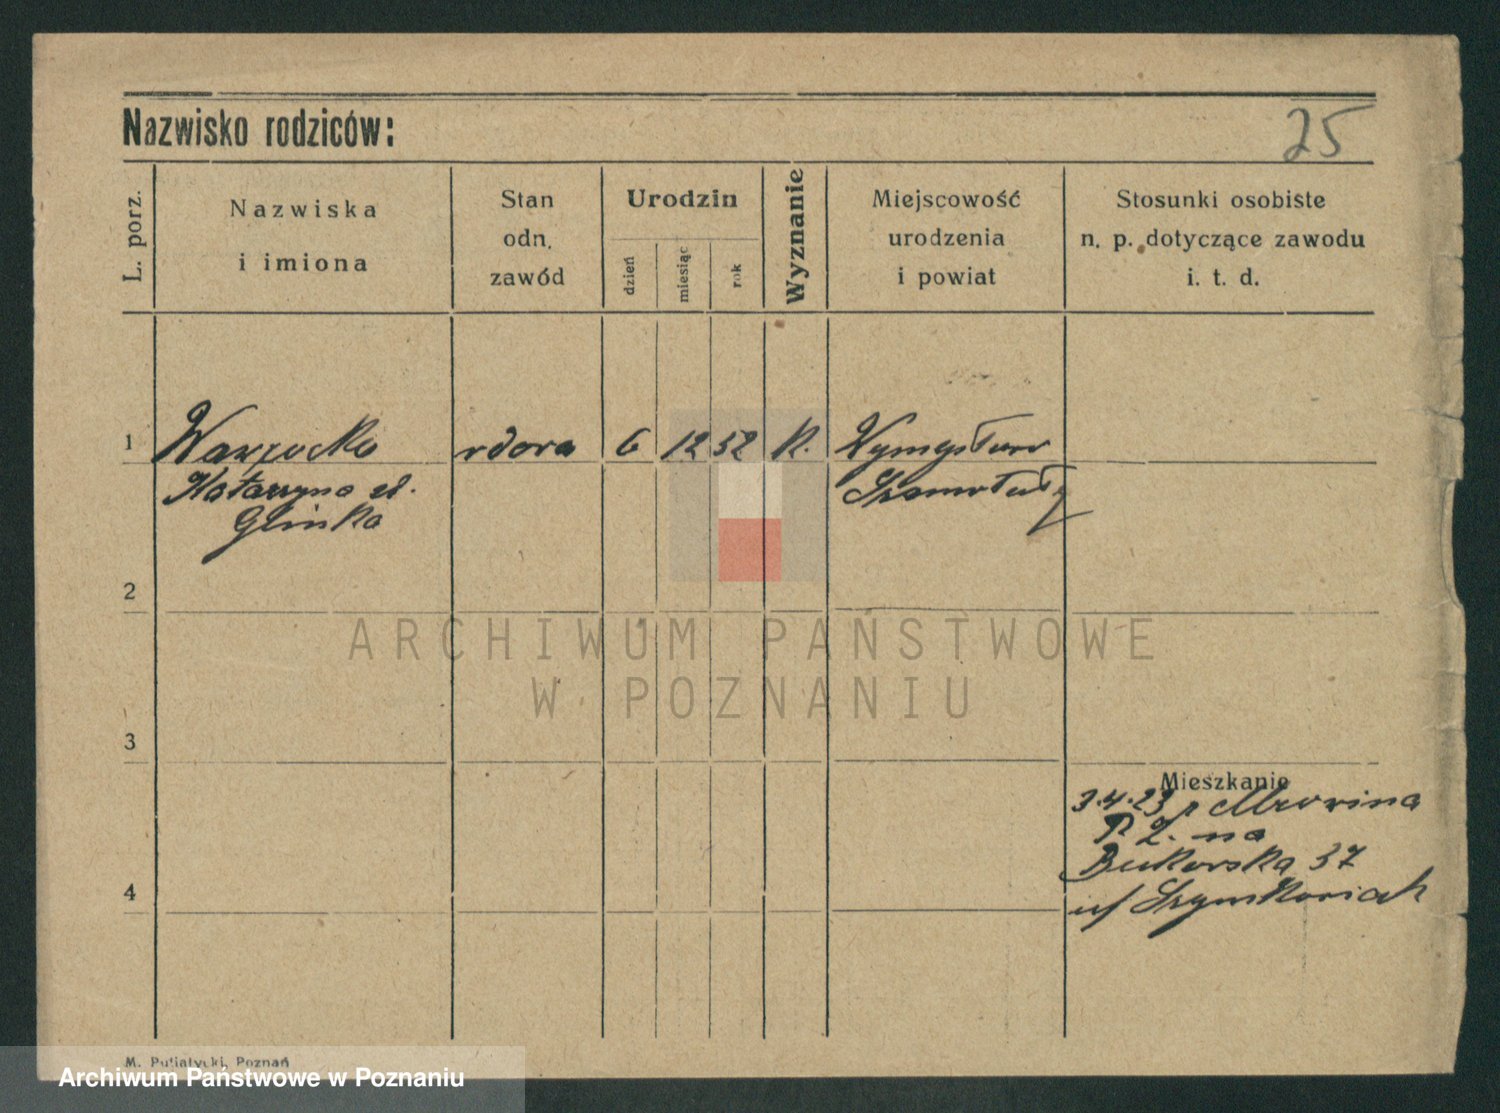 Nazwisko rodziców:
25
L. porz.
Nazwiska
i imiona
Stan
odn.
zawód
Urodzin
dzień
miesiąc
rok
Wyznanie
Miejscowość
urodzenia
i powiat
Stosunki osobiste
n. p. dotyczące zawodu
i. t. d.
1
wdowa 6 12 52 K.
Katarzyna
Glinka
Szamotuły
2
ARCHIWUM PAŃSTWOWE
W POZNANIU
3
Mieszkanie
3.4.23 Mrowina
na
Bukowska 37
4
M. Putiatycki, Poznań
Archiwum Państwowe w Poznaniu